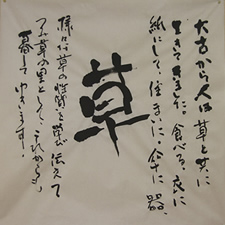 大昔から人は草と共に
生きてきました。食べる、衣に
紙にして、住まいに。命に、器、
草
様々な草の性質を学び伝えて
草の里として、これからも
暮してゆきます。